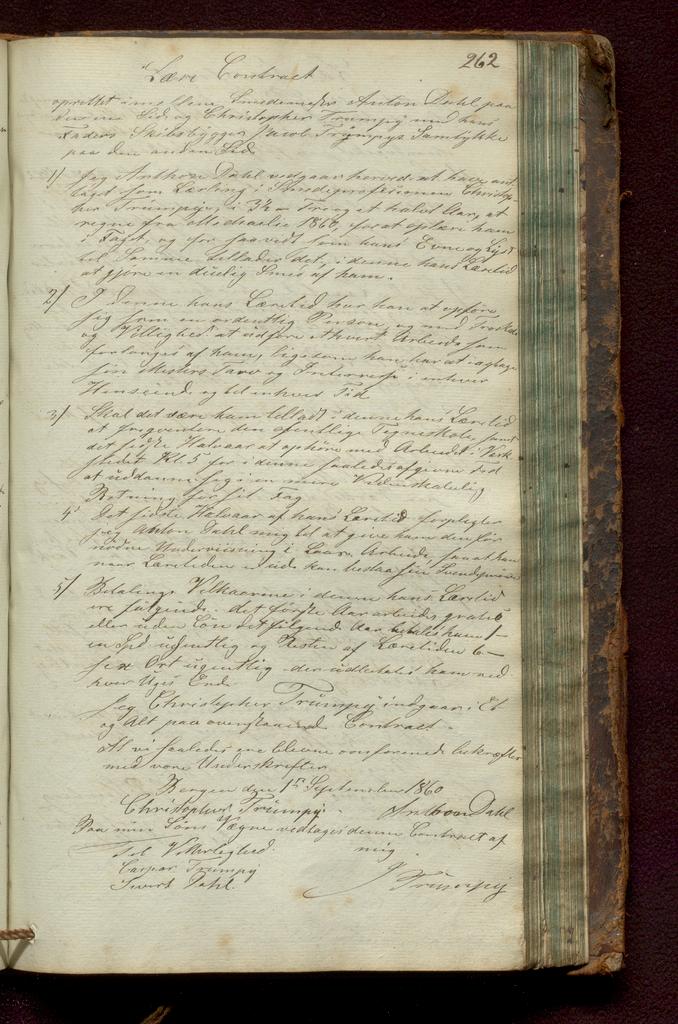 262
Lære Contract
oprettet imellem Smedemester Anton Dahl paa
den ene Side og Christopher Trumpy med hans
Faders Skibsbygger Jacob Trumpys Samtykke
paa den anden Side
1/ Jeg Anthon Dahl vedgaar herved at have ant
taget som Lærling i Smedeprofessionen Christop
her Trumpy, i 3½ Tre og et halvt Aar, at
regne fra 1860, for at oplære ham
i Faget, og for saavidt som hans Evne og Lyst
til Samme tillader det, i denne hans Læretid
at gjøre en duelig Smed af ham.
2/ I denne hans Læretid har han at opføre
sig som en ordentlig Person, og med Troskab
og Villighed at udføre ethvert Arbeide som
forlanges af ham, ligesom han har at iagttage
sin Mesters Tarv og Interesse i enhver
Henseende og til enhver Tid
3/ Skal det være ham tilladt i denne hans Læretid
at frequentere den offentlige Tegneskole, samt
det sidste Halvaar at ophøre med Arbeidet i Værk
stedet Kl. 5 for i denne saaledes afgivne Tid
at uddanne sig i en mere Videnskabelig
Retning for sit Fag
4/ Det sidste Halvaar af hans Læretid forpligter
jeg Anton Dahl mig til at give ham den for
nødne Underviisning i Arbeide saa at han
naar Læretiden er ude kan bestaa sin Svendeprøve
5/ Betalings Vilkaarene i denne hans Læretid
ere følgende. det første Aar arbeides gratis
eller uden Løn det følgende Aar betales ham 1-
en Spd ugentlig og Resten af Læretiden 6-
sex Ort ugentlig der udbetales ham ved
hver Uges Ende
Jeg Christopher Trumpy indgaar i Et
og Alt paa ovenstaaende Contract.
At vi saaledes ere blevne overeens bekræftes
med vore Underskrifter
Bergen den 1ste September 1860
Christopher Trumpy. Anthon Dahl
Paa min Søns Vegne vedtages denne Contract af
mig.
Til Vitterlighed.
J Trumpy
Caspar Trumpy
Sivert Dahl.